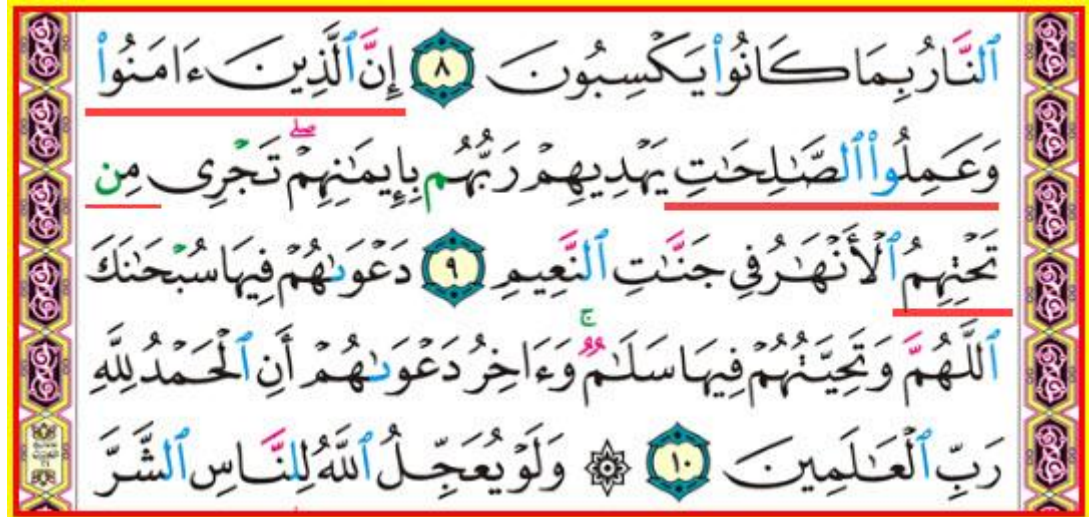 ٱلنَّارُ بِمَا كَانُوا۟ يَكْسِبُونَ ٨ إِنَّ ٱلَّذِينَ ءَامَنُوا۟
وَعَمِلُوا۟ ٱلصَّـٰلِحَـٰتِ يَهْدِيهِمْ رَبُّهُم بِإِيمَـٰنِهِمْ ۖ تَجْرِى مِن
تَحْتِهِمُ ٱلْأَنْهَـٰرُ فِى جَنَّـٰتِ ٱلنَّعِيمِ ٩ دَعْوَىٰهُمْ فِيهَا سُبْحَـٰنَكَ
ٱللَّهُمَّ وَتَحِيَّتُهُمْ فِيهَا سَلَـٰمٌ ۚ وَءَاخِرُ دَعْوَىٰهُمْ أَنِ ٱلْحَمْدُ لِلَّهِ
رَبِّ ٱلْعَـٰلَمِينَ ١٠ ۞ وَلَوْ يُعَجِّلُ ٱللَّهُ لِلنَّاسِ ٱلشَّرَّ